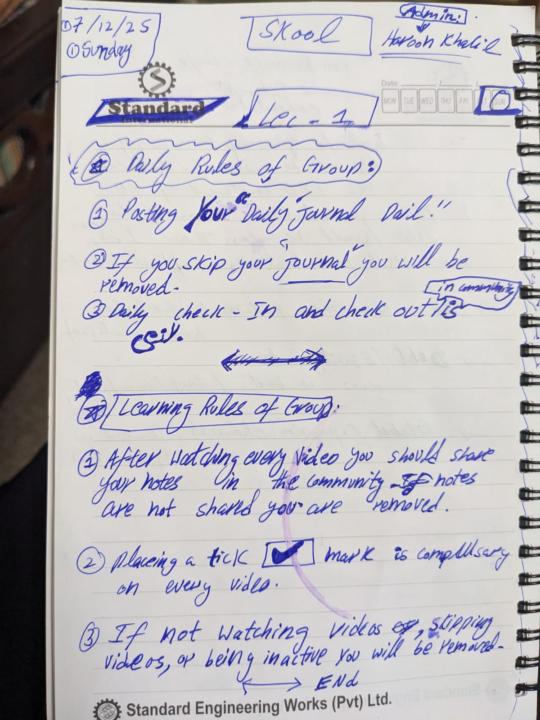 07/12/25
① Sunday
Skool
Admin:
Haroon Khalil
Standard
International
Date:
MON TUE WED THU FRI SUN
Lec - 1
Daily Rules of Group:
① Posting Your "Daily Journal Dail!"
② If you skip your "Journal" you will be
removed.
③ Daily check - In and check out is
in community
Learning Rules of Group:
① After watching every video you should share
your notes in the community If notes
are not shared you are removed.
② Placeing a tick ✔ mark is compulsary
on every video.
③ If not watching videos, skipping
videos, or being inactive you will be removed-
End
Standard Engineering Works (Pvt) Ltd.